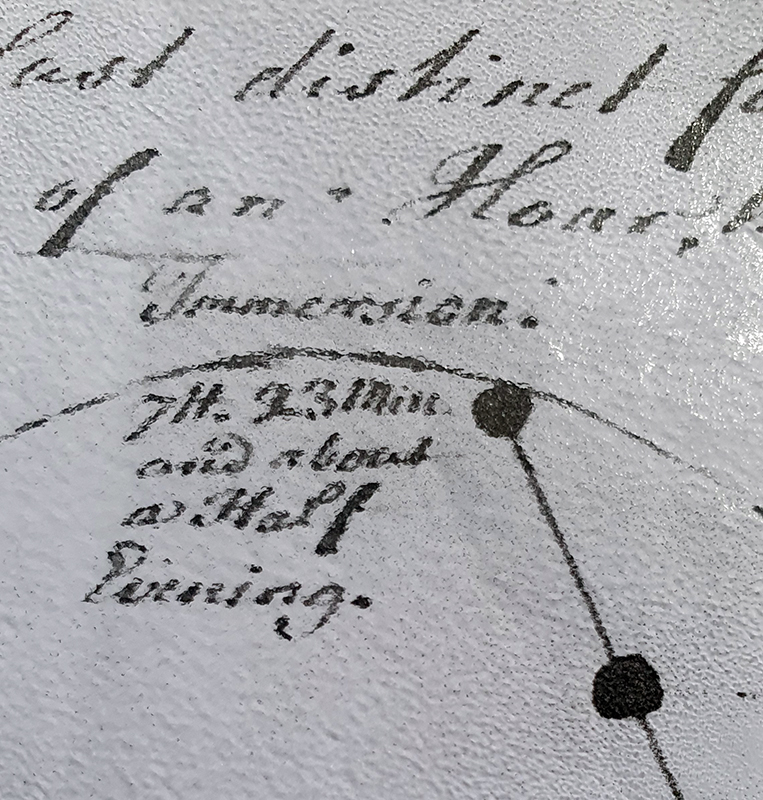 last distinct
of an Hour,
Immersion.
7H. 23Min
and about
a Half
Evening.